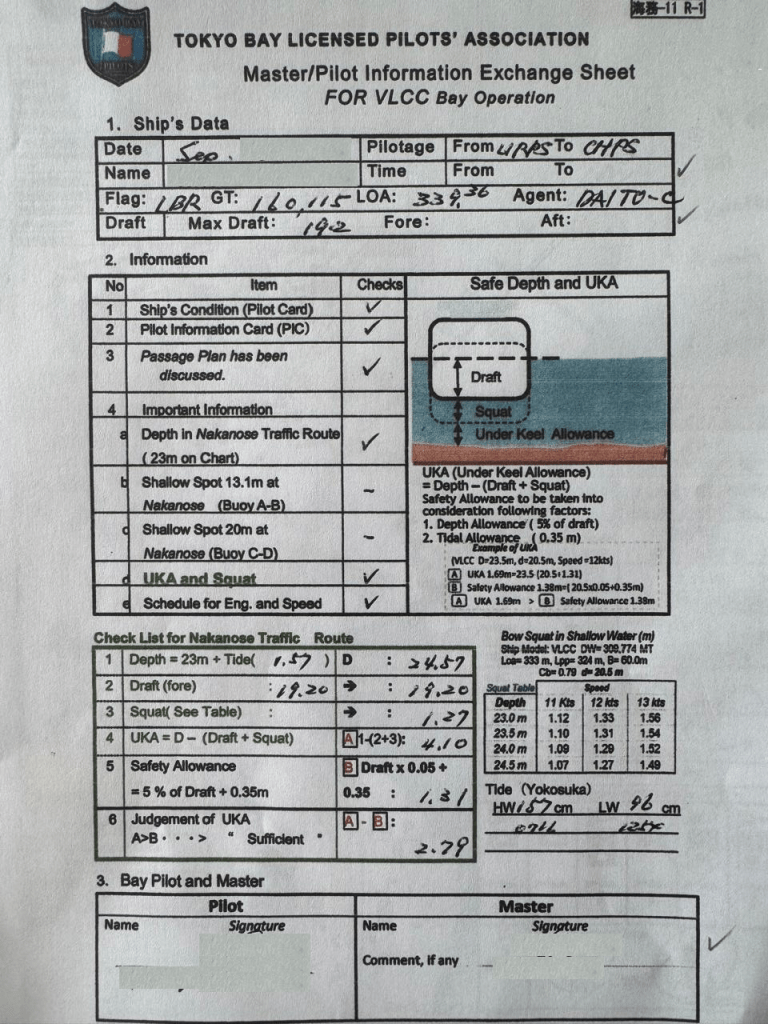 海務-11 R-1
TOKYO BAY
PILOTS
TOKYO BAY LICENSED PILOTS' ASSOCIATION
Master/Pilot Information Exchange Sheet
FOR VLCC Bay Operation
1. Ship's Data
Date Sep. Pilotage From URPS To CHPS ✓
Name Time From To
Flag: LBR GT: 160,115 LOA: 339.36 Agent: DAITO-C
Draft Max Draft: 19.2 Fore: Aft: ✓
2. Information
No Item Checks
1 Ship's Condition (Pilot Card) ✓
2 Pilot Information Card (PIC) ✓
3 Passage Plan has been
discussed. ✓
4 Important Information
a Depth in Nakanose Traffic Route
(23m on Chart) ✓
b Shallow Spot 13.1m at
Nakanose (Buoy A-B) –
c Shallow Spot 20m at
Nakanose (Buoy C-D) –
d UKA and Squat ✓
e Schedule for Eng. and Speed ✓
Safe Depth and UKA
Draft
Squat
Under Keel Allowance
UKA (Under Keel Allowance)
= Depth – (Draft + Squat)
Safety Allowance to be taken into
consideration following factors:
1. Depth Allowance ( 5% of draft)
2. Tidal Allowance ( 0.35 m)
Example of UKA
(VLCC D=23.5m, d=20.5m, Speed =12kts)
A UKA 1.69m=23.5-(20.5+1.31)
B Safety Allowance 1.38m=(20.5x0.05+0.35m)
A UKA 1.69m > B Safety Allowance 1.38m
Check List for Nakanose Traffic Route
1 Depth = 23m + Tide( 1.57 ) D : 24.57
2 Draft (fore) : 19.20 → : 19.20
3 Squat( See Table) : → : 1.27
4 UKA = D – (Draft + Squat) A 1-(2+3): 4.10
5 Safety Allowance B Draft x 0.05 +
= 5 % of Draft + 0.35m 0.35 : 1.31
6 Judgement of UKA A - B :
A>B · · · > " Sufficient " 2.79
Bow Squat in Shallow Water (m)
Ship Model: VLCC DW= 309,774 MT
Loa= 333 m, Lpp= 324 m, B= 60.0m
Cb= 0.79 d= 20.5 m
Squat Table Speed
Depth 11 Kts 12 kts 13 kts
23.0 m 1.12 1.33 1.56
23.5 m 1.10 1.31 1.54
24.0 m 1.09 1.29 1.52
24.5 m 1.07 1.27 1.49
Tide (Yokosuka)
HW 157 cm LW 96 cm
3. Bay Pilot and Master
Pilot Master
Name Signature Name Signature
Comment, if any ✓